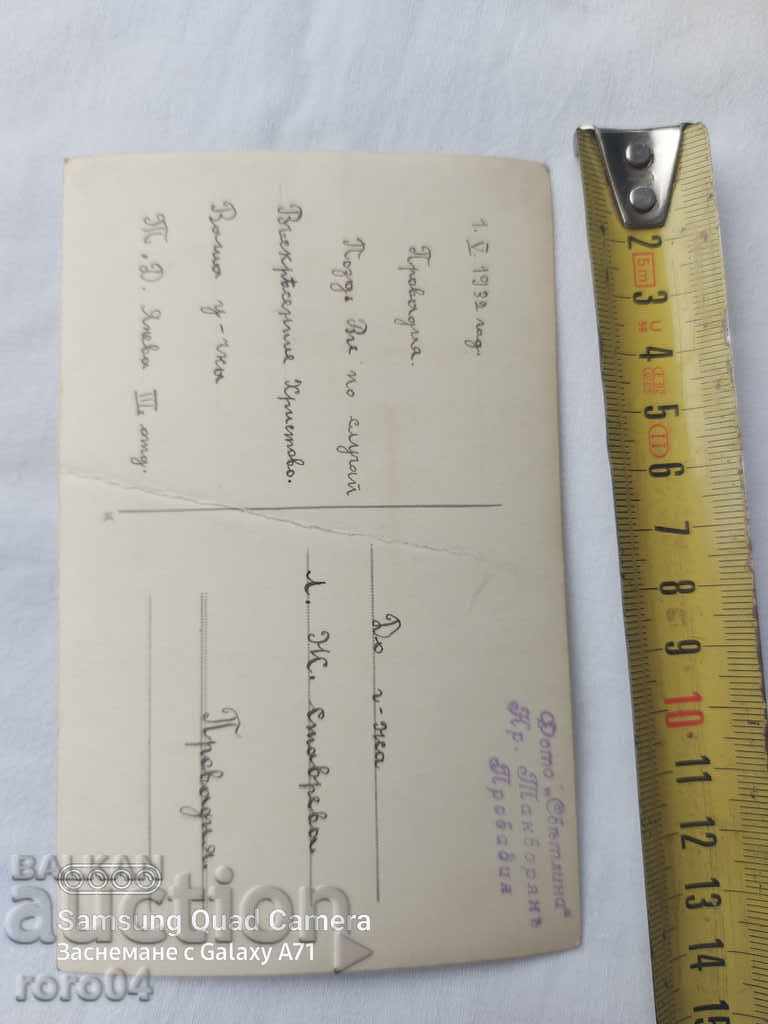 1. V 1932 год.
Провадия.
Позд. Ве по случай
Възкресение Христово.
Ваша у-чка
Т. Д. Янева III отд.
До г-жа
Л. Ж. Ставрева
Провадия.
Фото „Свѣтлина"
Кр. Такворянъ
Провадия
2 3 4 5 6 7 8 9 10 11 12 13 14 15
5m
II
BALKAN
auction
Samsung Quad Camera
Заснемане с Galaxy A71
roro04